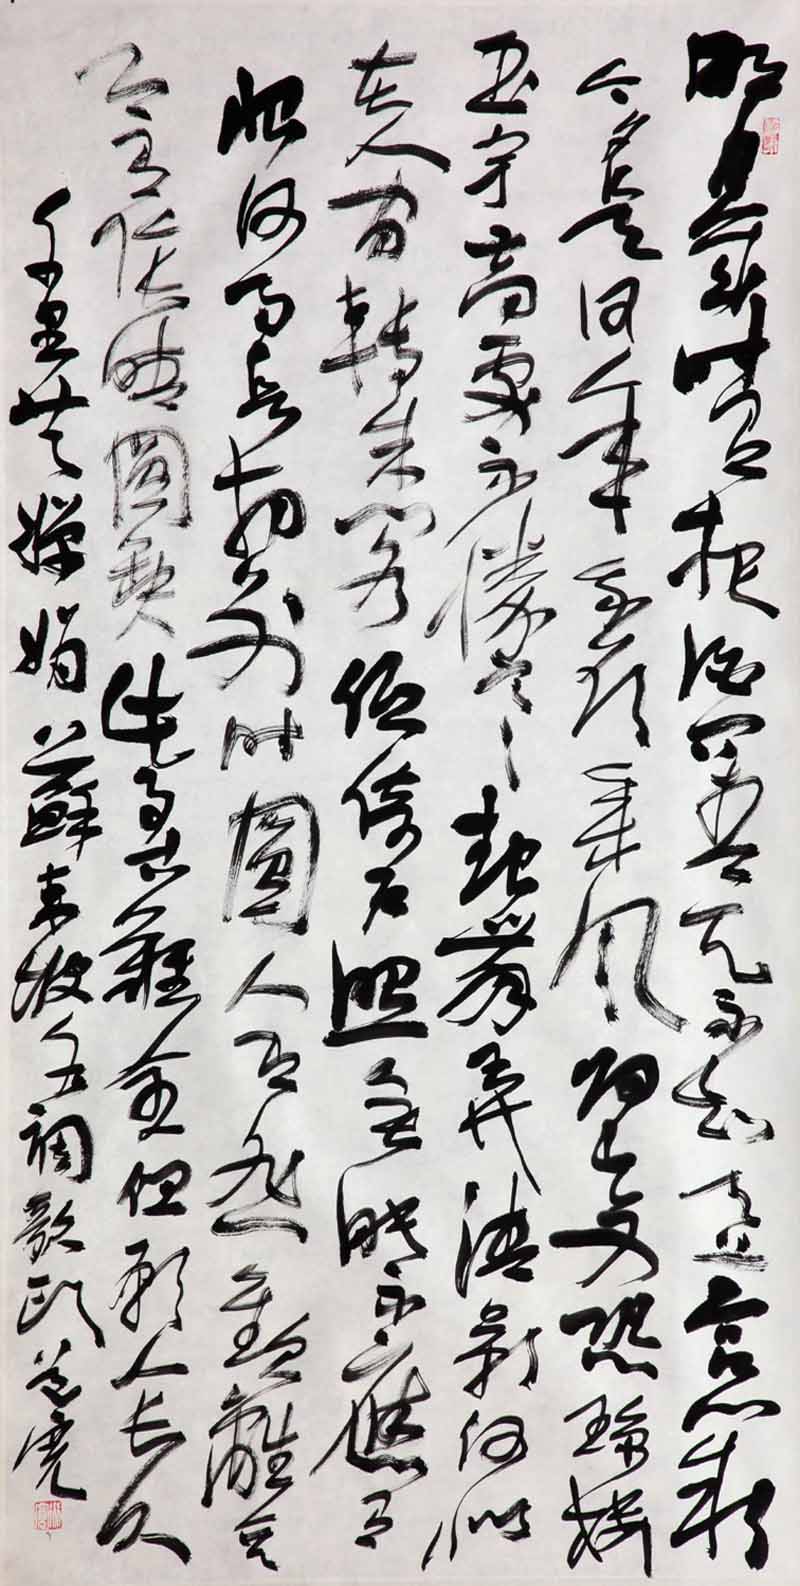 明月幾時有把酒問青天不知天上宮闕
今夕是何年我欲乘風歸去又恐瓊樓
玉宇高處不勝寒起舞弄清影何似
在人間轉朱閣低綺户照無眠不應有
恨何事長向别時圓人有悲歡離合
月有陰晴圓缺此事古難全但願人長久
千里共嬋娟蘇東坡水調歌頭